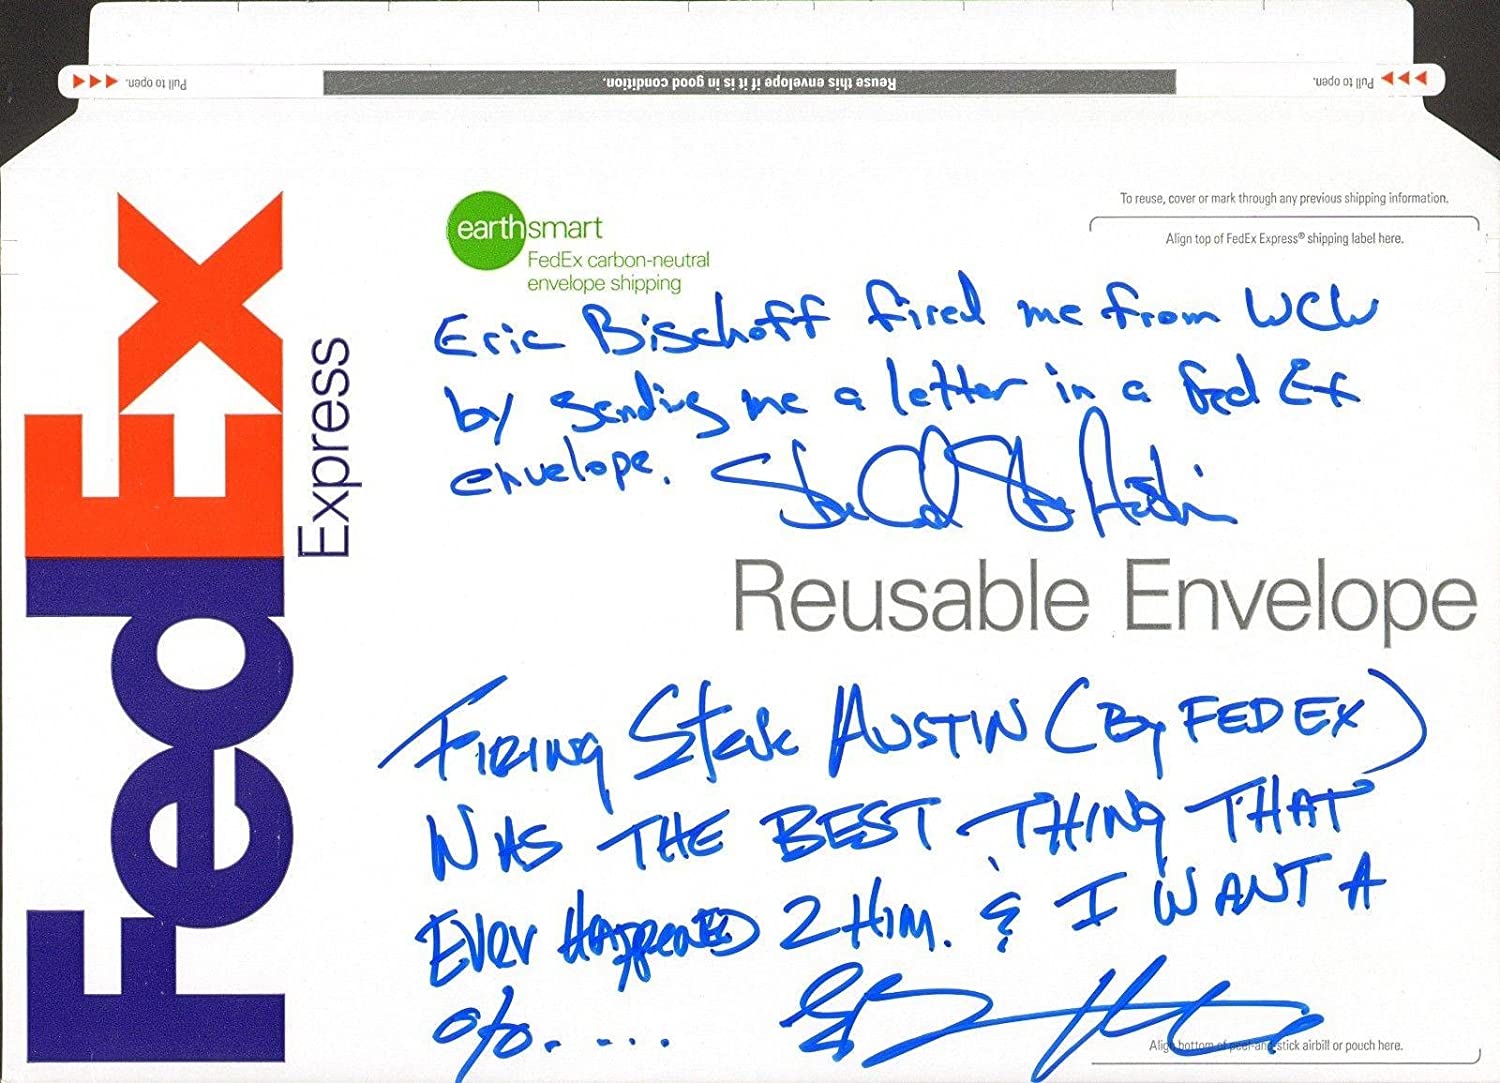 Pull to open.
Reuse this envelope if it is in good condition.
Pull to open.
To reuse, cover or mark through any previous shipping information.
Align top of FedEx Express® shipping label here.
earthsmart
FedEx carbon-neutral
envelope shipping
FedEx
Express
Eric Bischoff fired me from WCW
by sending me a letter in a Fed Ex
envelope. Stone Cold Steve Austin
Reusable Envelope
FIRING Steve AUSTIN (By FED EX)
WAS THE BEST THING THAT
EVER HAPPENED 2 HIM. & I WANT A
%....
Align bottom of peel-and-stick airbill or pouch here.